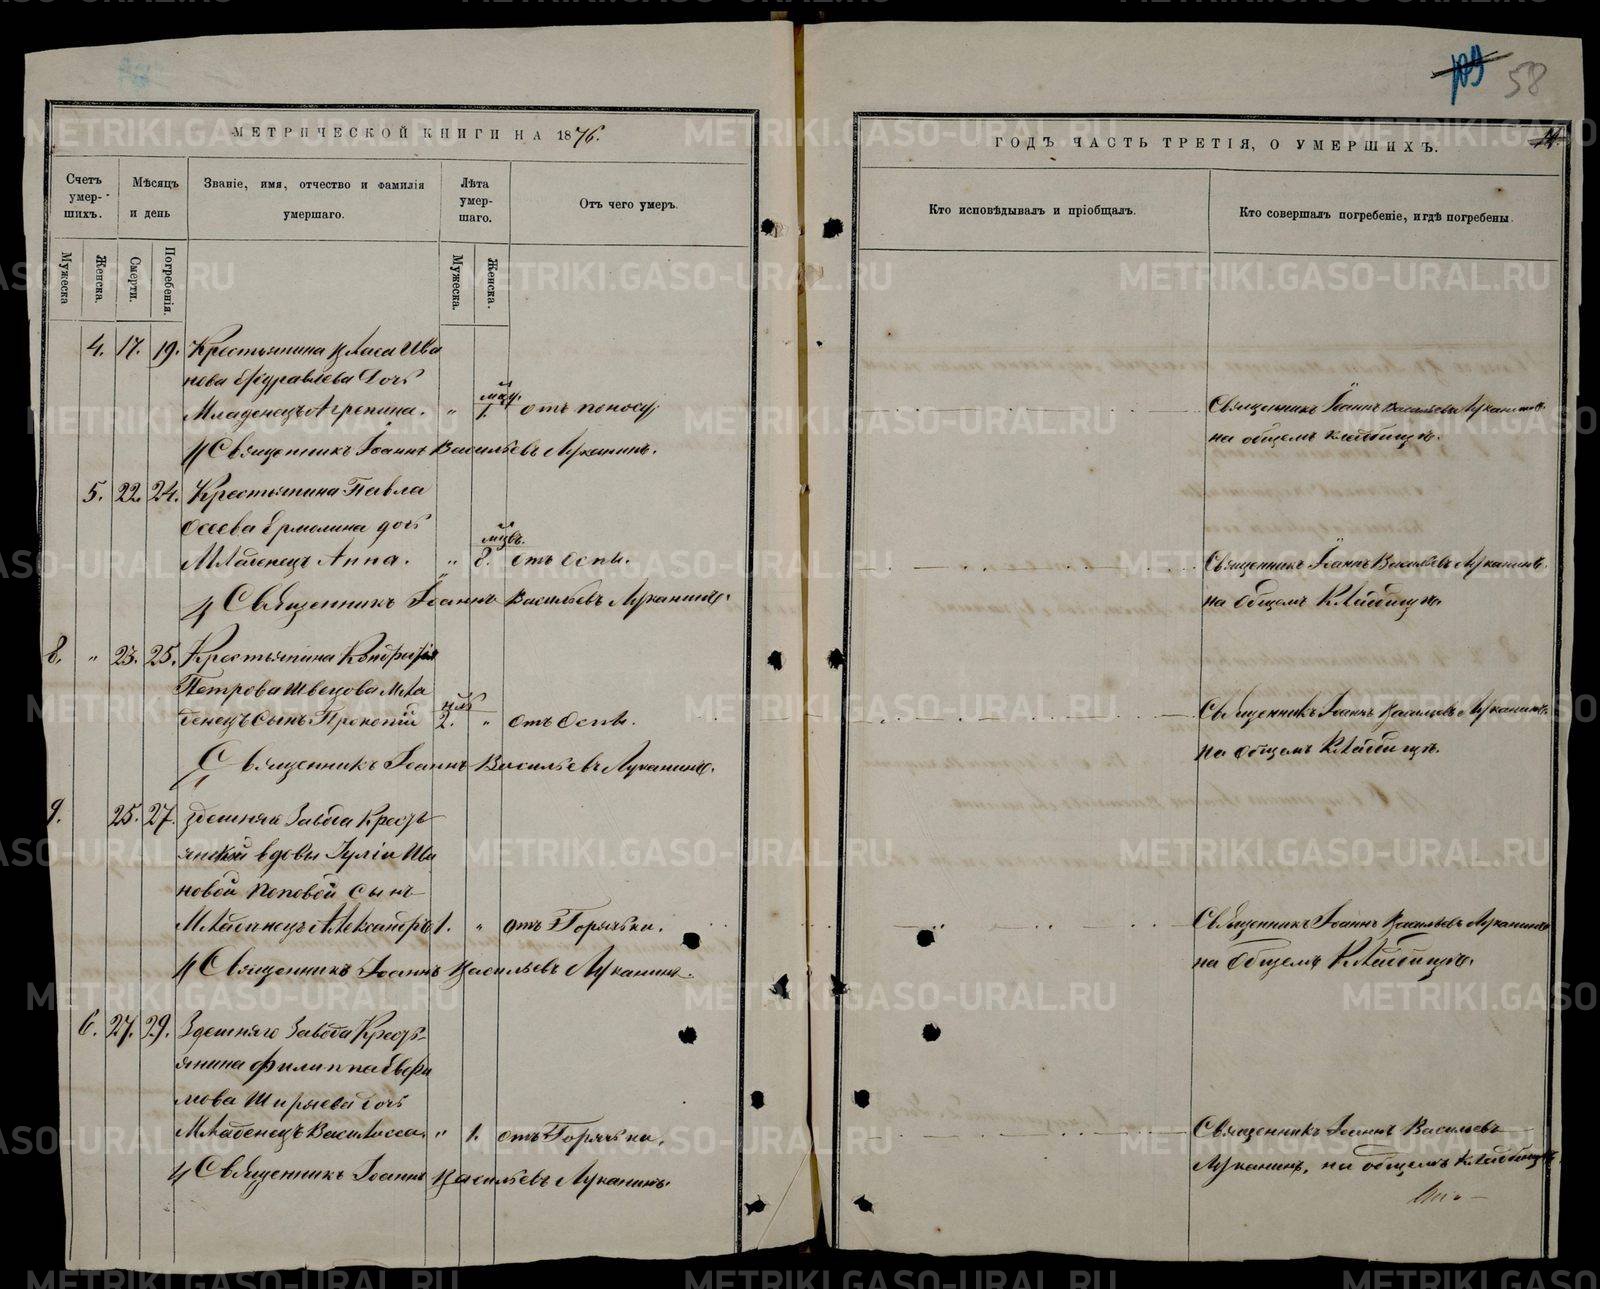 109 58
МЕТРИЧЕСКОЙ КНИГИ НА 1876.
ГОДЪ ЧАСТЬ ТРЕТІЯ, О УМЕРШИХЪ.
Счетъ умер-шихъ.
Мѣсяцъ и день
Званіе, имя, отчество и фамилія умершаго.
Лѣта умер-шаго.
Отъ чего умеръ.
Кто исповѣдывалъ и пріобщалъ.
Кто совершалъ погребеніе, и гдѣ погребены.
Мужеска
Женска.
Смерти.
Погребенія.
Мужеска.
Женска.
4. 17. 19. Крестьянина Власа Ива
нова Журавлева дочь
Младенецъ Агрепина. " 1. отъ поносу.
Священникъ Іоаннъ Васильевъ Луканинъ
на общемъ кладбищѣ.
Священникъ Іоаннъ Васильевъ Луканинъ.
5. 22. 24. Крестьянина Павла
Осеева Ермолина дочь
Младенецъ Анна. " 8. отъ Оспы.
Священникъ Іоаннъ Васильевъ Луканинъ.
на общемъ Кладбищѣ.
Священникъ Іоаннъ Васильевъ Луканинъ.
8. " 23. 25. Крестьянина Кондратія
Петрова Швецова Мла
денецъ Сынъ Прокопій 2. " отъ Оспы.
Священникъ Іоаннъ Васильевъ Луканинъ.
на общемъ Кладбищѣ.
Священникъ Іоаннъ Васильевъ Луканинъ.
9. 25. 27. Здешняго Завода Кресть
янской вдовы Іуліи Ива
новой Поповой Сынъ
Младенецъ Александръ 1. " отъ Горячки.
Священникъ Іоаннъ Васильевъ Луканинъ
на Общемъ Кладбищѣ.
Священникъ Іоаннъ Васильевъ Луканинъ.
6. 27. 29. Здешняго Завода Кресть-
янина Филиппа Евфи
мова Ширяева дочь
Младенецъ Василисса. " 1. отъ Горячки.
Священникъ Іоаннъ Васильевъ
Луканинъ, на общемъ Кладбищѣ.
Священникъ Іоаннъ Васильевъ Луканинъ.
METRIKI.GASO-URAL.RU